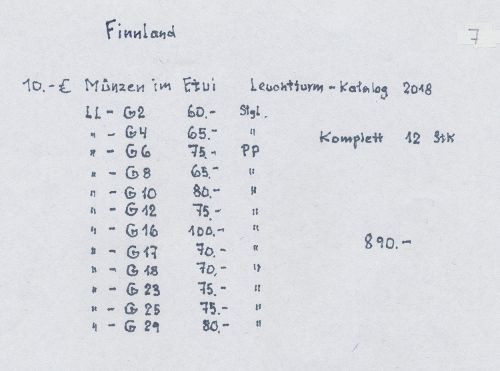 Finnland
7
10.-€ Münzen im Etui Leuchtturm-Katalog 2018
LL - G2 60.- Stgl.
" - G4 65.- "
Komplett 12 Stk
" - G6 75.- PP
" - G8 65.- "
" - G10 80.- "
" - G12 75.- "
" - G16 100.- "
890.-
" - G17 70.- "
" - G18 70,- "
" - G23 75.- "
" - G25 75.- "
" - G29 80.- "